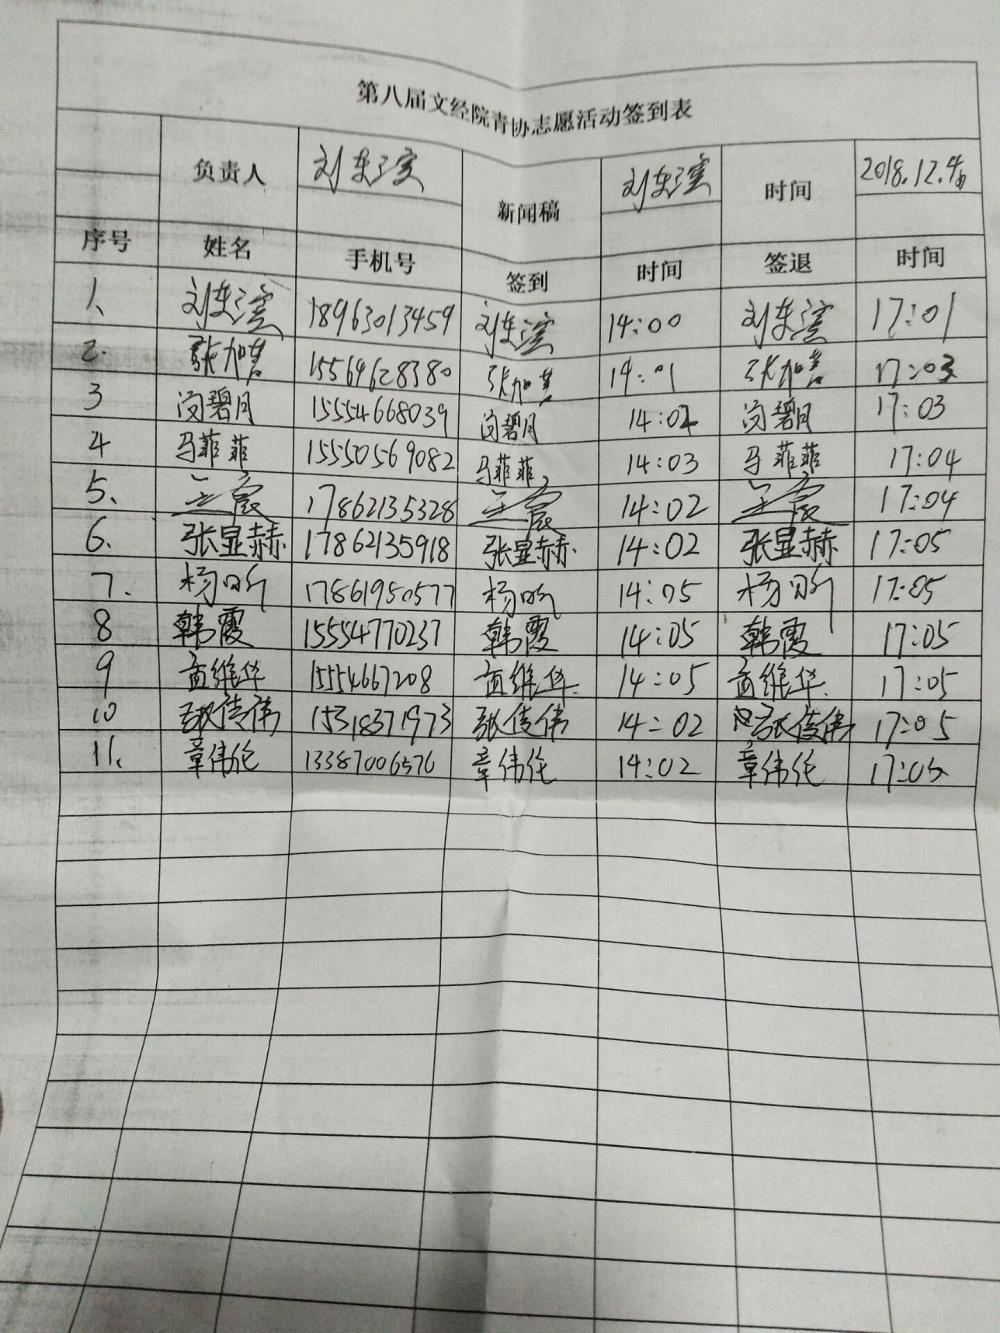 第八届文经院青协志愿活动签到表
负责人 刘东滨 新闻稿 刘东滨 时间 2018.12.4
序号 姓名 手机号 签到 时间 签退 时间
1、 刘东滨 18963013459 刘东滨 14:00 刘东滨 17:01
2. 张加慧 15564628380 张加慧 14:01 张加慧 17:03
3 闵碧月 15554668039 闵碧月 14:02 闵碧月 17:03
4 马菲菲 15550569082 马菲菲 14:03 马菲菲 17:04
5、 17862135328 14:02 17:04
6. 张显赫 17862135918 张显赫 14:02 张显赫 17:05
7. 杨昕 17861950577 杨昕 14:05 杨昕 17:05
8 韩霞 15554770237 韩霞 14:05 韩霞 17:05
9 孟维华 15554667208 孟维华 14:05 孟维华 17:05
10 张倩伟 15318371973 张倩伟 14:02 张倩伟 17:05
11. 章伟伦 13387006576 章伟伦 14:02 章伟伦 17:05